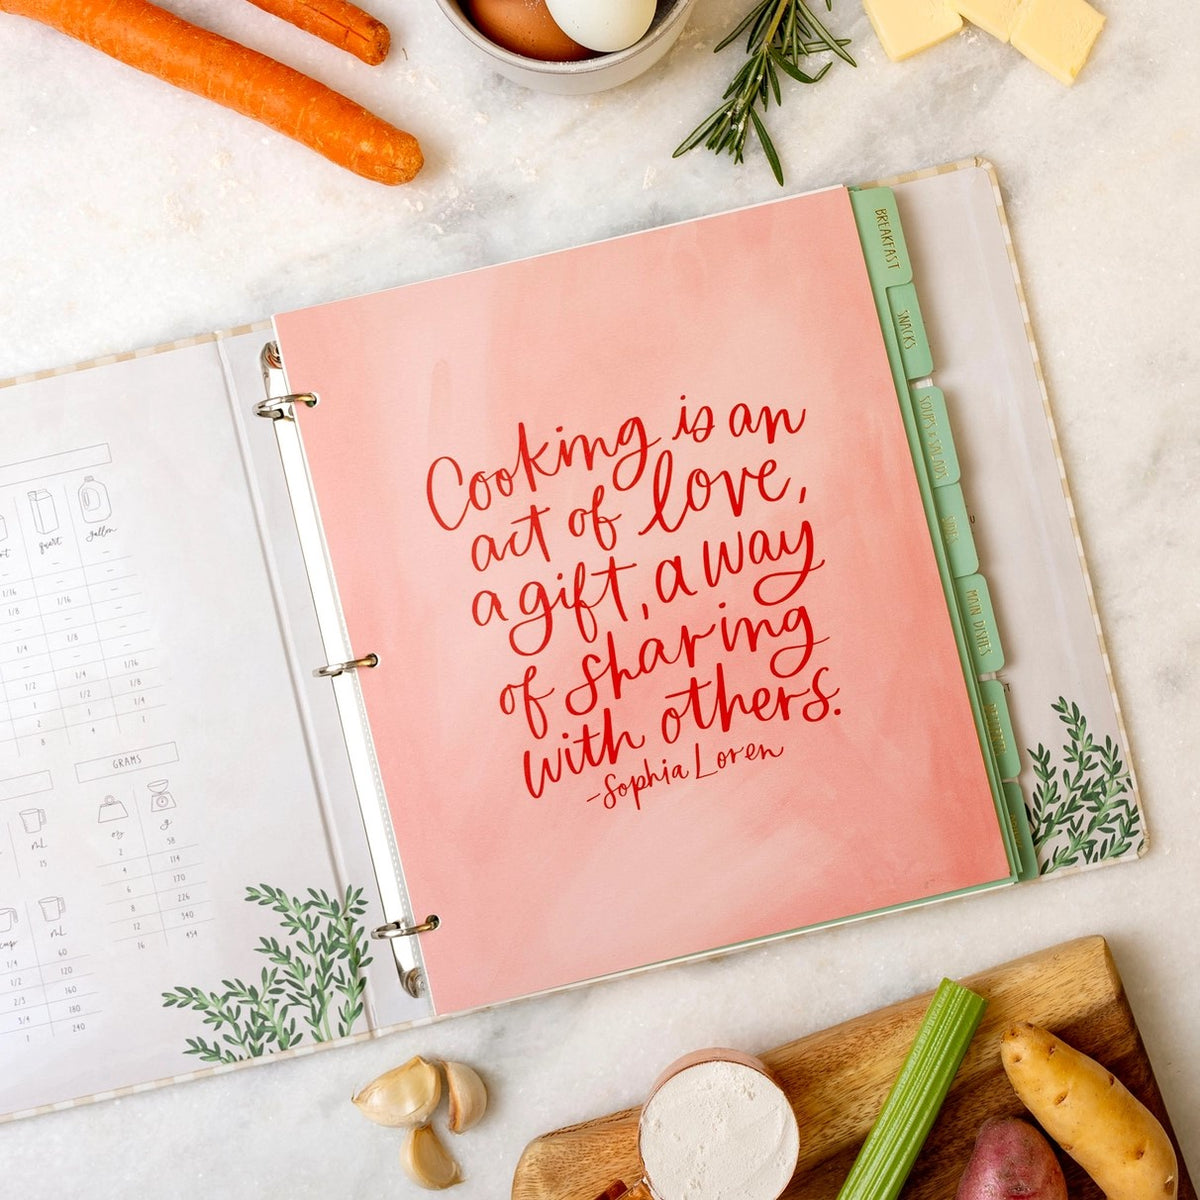 Cooking is an
act of love,
a gift, a way
of sharing
with others.
-Sophia Loren
BREAKFAST
SNACKS
SOUPS & SALADS
SIDES
MAIN DISHES
quart gallon
1/16
1/8 1/16
1/8
1/4 1/8
1/2 1/4 1/16
1 1/2 1/8
2 1 1/4
8 4 1
GRAMS
oz g
2 58
4 114
6 170
8 226
12 340
16 454
mL
15
cup mL
1/4 60
1/2 120
2/3 160
3/4 180
1 240